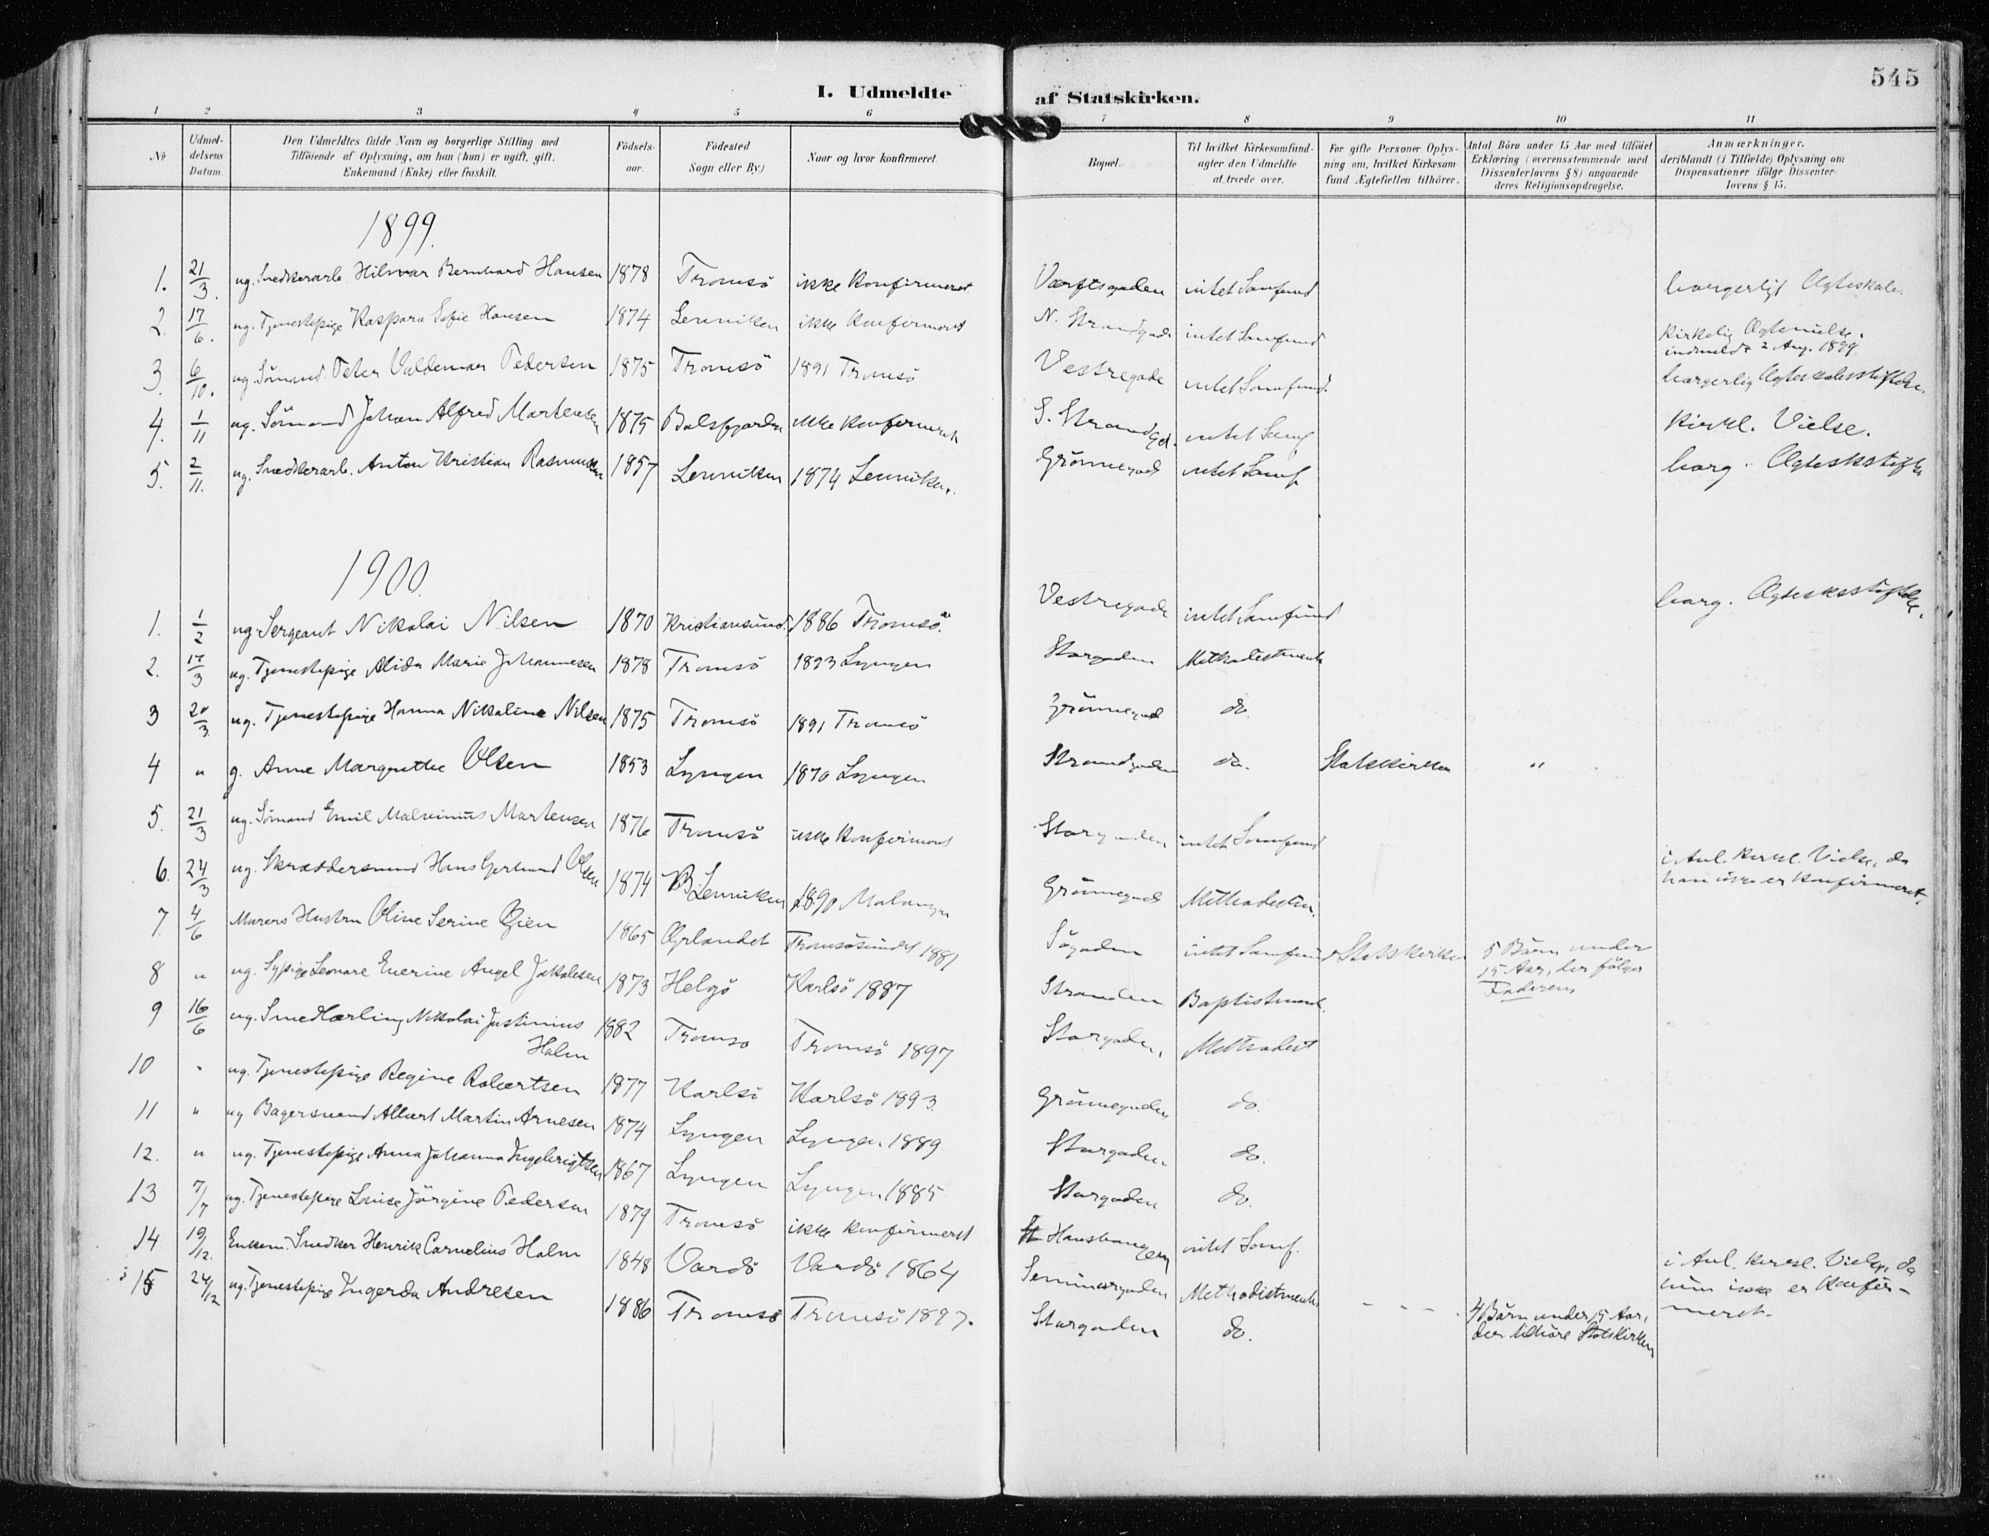 545
I. Udmeldte af Statskirken.
1 2 3 4 5 6 7 8 9 10 11
No Udmeldelsens Datum. Den Udmeldtes fulde Navn og borgerlige Stilling med Tilføiende af Oplysning, om han (hun) er ugift, gift, Enkemand (Enke) eller fraskilt. Fødselsaar. Fødested Sogn eller By) Naar og hvor konfirmeret. Bopæl. Til hvilket Kirkesamfund agter den Udmeldte at træde over. For gifte Personer Oplysning om, hvilket Kirkesamfund Ægtefællen tilhører. Antal Børn under 15 Aar med tilføiet Erklæring (overensstemmende med Dissenterlovens § 8) angaaende deres Religionsopdragelse. Anmærkninger, deriblandt (i Tilfælde) Oplysning om Dispensationer ifølge Dissenterlovens § 15.
1899.
1. 21/3. ug. Snedkerarb. Hilmar Bernhard Hansen 1878 Tromsö ikke konfirmeret Værftsgaden intet Samfund borgerligt Ægteskab.
2. 17/6. ug. Tjenestepige Kaspara Sofie Hansen 1874 Lenviken ikke konfirmeret N. Strandgade intet Samfund kirkelig Ægtevielse. indmeldt 2 Aug. 1899.
3. 6/10. ug. Sömand Peter Valdemar Pedersen 1875 Tromsö 1891 Tromsö Vestregade intet Samfund. borgerlig Ægteskabsstiftelse.
4. 1/11 ug. Sömand Johan Alfred Martensen 1875 Balsfjorden ikke konfirmeret S. Strandgd. intet Samf kirkl. Vielse.
5. 2/11. ug. Snedkerarb. Anton Kristian Rasmussen 1857 Lenviken 1874 Lenviken. Grönnegad intet Samf. borg. Ægteskstift
1900.
1. 1/2 ug. Sergeant Nikolai Nilsen 1870 Kristiansund. 1886 Tromsö. Vestregade intet Samfund borg. Ægtesksstiftelse.
2. 17/3 ug. Tjenestepige Alida Marie Johannesen 1878 Tromsö 1893 Lyngen Storgaden Methodistmenh
3 20/3 ug. Tjenestepige Hanna Nikoline Nilsen 1875 Tromsö 1891 Tromsö Grönnegad do.
4 " g. Anne Margrethe Olsen 1853 Lyngen 1870 Lyngen Strandgaden do. Statskirken "
5. 21/3 ug. Sömand Emil Malvinius Martensen 1876 Tromsö ikke konfirmeret Storgaden intet Samfund
6. 24/3 ug. Skræddersvend Hans Olsen 1874 Lenviken 1890 Malangen Grönnegad Methodistm. i Anl. kirkl. Vielse, da han ikke er konfirmeret.
7. 4/6 Murers Hustru Oline Serine Öien 1865 Ørlandet Tromsösundet 1881 Sögaden intet Samfund Statskirken 5 Börn under 15 Aar, der fölger Faderen
8 " ug. Sypige Leonare Enerine Angel Jakobsen 1873 Helgö Karlsö 1887 Stranden Baptistmenh.
9 16/6 ug. Smedlærling Nikolai Justinius Holm 1882 Tromsö Tromsö 1897 Storgaden. Methodist
10 " ug. Tjenestepige Regine Robertsen 1877 Karlsö Karlsö 1893. Grönnegaden do.
11 " ug Bagersvend Albert Martin Arnesen 1874 Lyngen Lyngen 1889 Storgaden do.
12. " ug. Tjenestepige Anna Johanna Ingebrigtsen 1867 Lyngen Lyngen 1885 Storgaden do.
13 7/7 ug. Tjenestepige Louise Jörgine Pedersen 1879 Tromsö ikke konfirmeret intet Samf. i Anl. kirkel. Vielse, da hun ikke er konfirmeret.
14 19/12. Enkem. Snedker Henrik Cornelius Holm 1848 Vardö Vardö 1864 Seminargaden Methodistmenh - - - 4 Börn under 15 Aar, der tilhöre Statskirken
15 24/12 ug. Tjenestepige Ingerda Andresen 1880 Tromsö Tromsö 1897. Storgaden do.